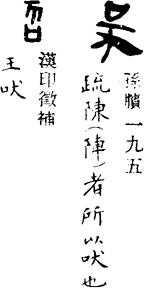 孫臏一九五
疏陳(陣)者所以吠也
漢印徵補
王吠